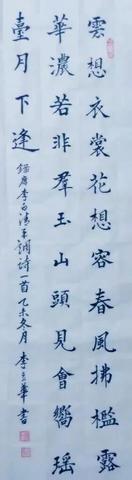 雲想衣裳花想容春風拂檻露
華濃若非羣玉山頭見會嚮瑤
臺月下逢
錄唐李白清平調詩一首乙未冬月 李華書